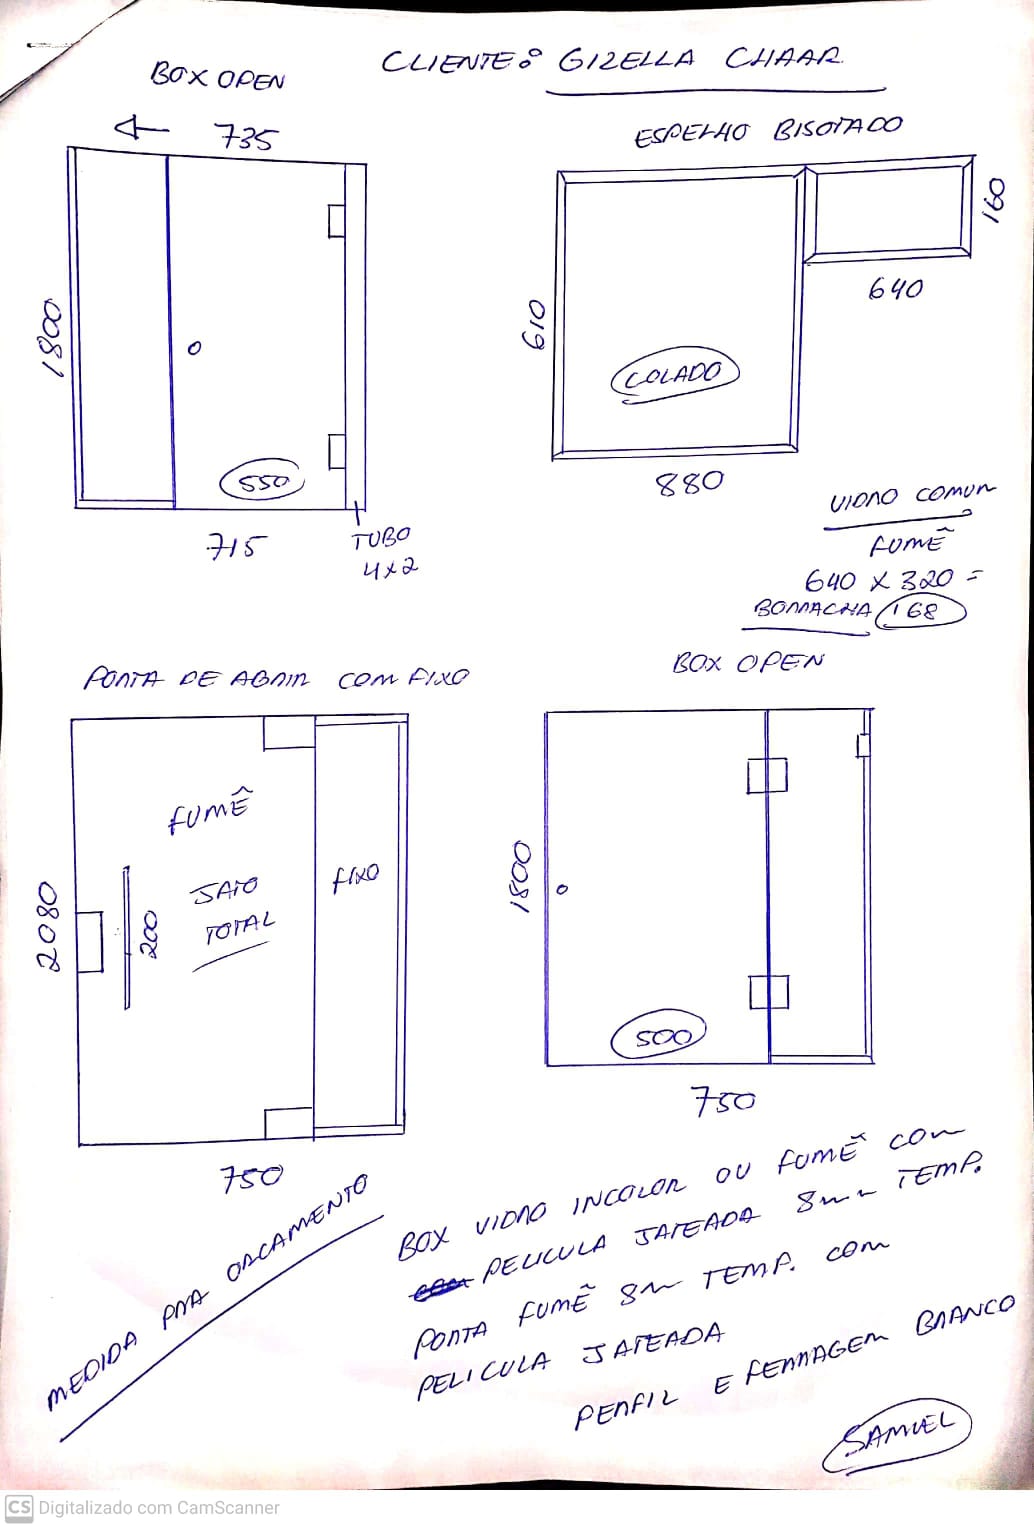 CLIENTE: GIZELLA CHAAR
BOX OPEN
735
1800
550
715
TUBO
4x2
ESPELHO BISOTADO
160
640
610
COLADO
880
VIDRO COMUM
FUMÊ
640 X 320 =
BORRACHA 168
PORTA DE ABRIR COM FIXO
FUMÊ
JATO
TOTAL
FIXO
2080
200
750
BOX OPEN
1800
500
750
MEDIDA PRA ORCAMENTO
BOX VIDRO INCOLOR OU FUMÊ COM
PELICULA JATEADA 8mm TEMP.
PORTA FUMÊ 8m TEMP. COM
PELICULA JATEADA
PERFIL E FERRAGEM BRANCO
SAMUEL
CS Digitalizado com CamScanner